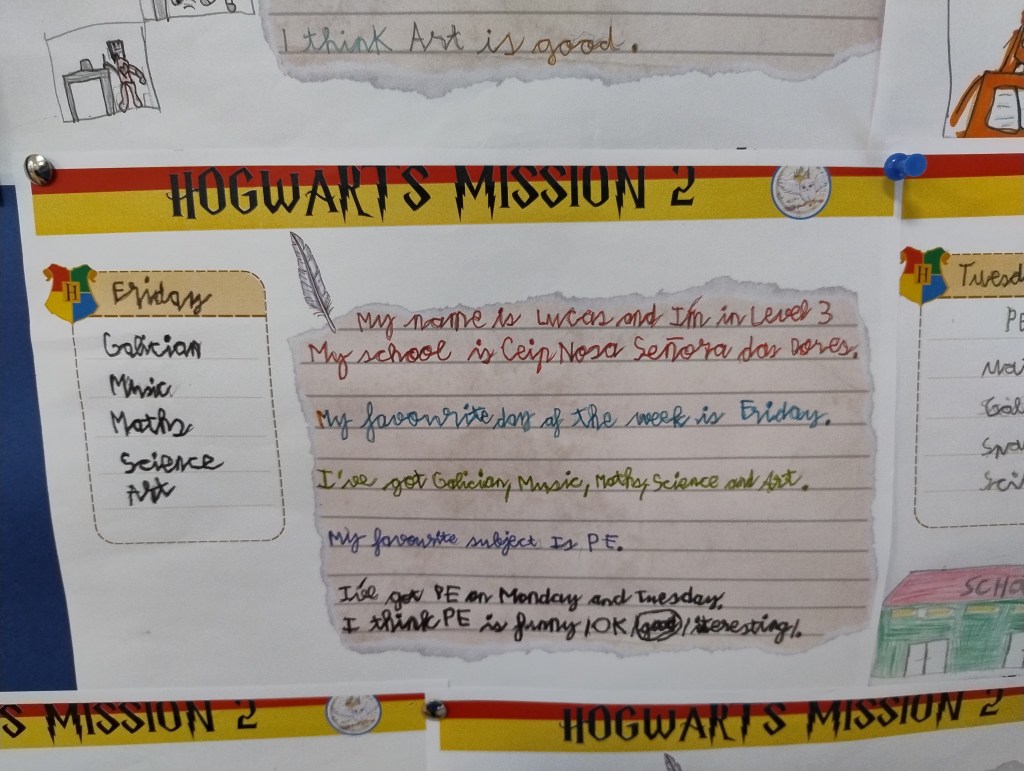 I think Art is good.
HOGWARTS MISSION 2
Friday
Galician
Music
Maths
Science
Art
My name is Lucas and I'm in Level 3
My school is Ceip Nosa Señora das Dores.
My favourite day of the week is Friday.
I've got Galician, Music, Maths, Science and Art.
My favourite subject Is PE.
I've got PE on Monday and Tuesday.
I think PE is funny/OK/good/iteresting/.
PE
SCHO
S MISSION 2
HOGWARTS MISSION 2